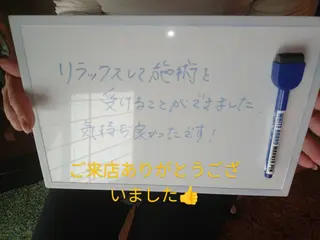 リラックスして施術を
受けることができました
気持ち良かったです!
ご来店ありがとうござ
いました👍
WHITE BOARD MARKER PEN